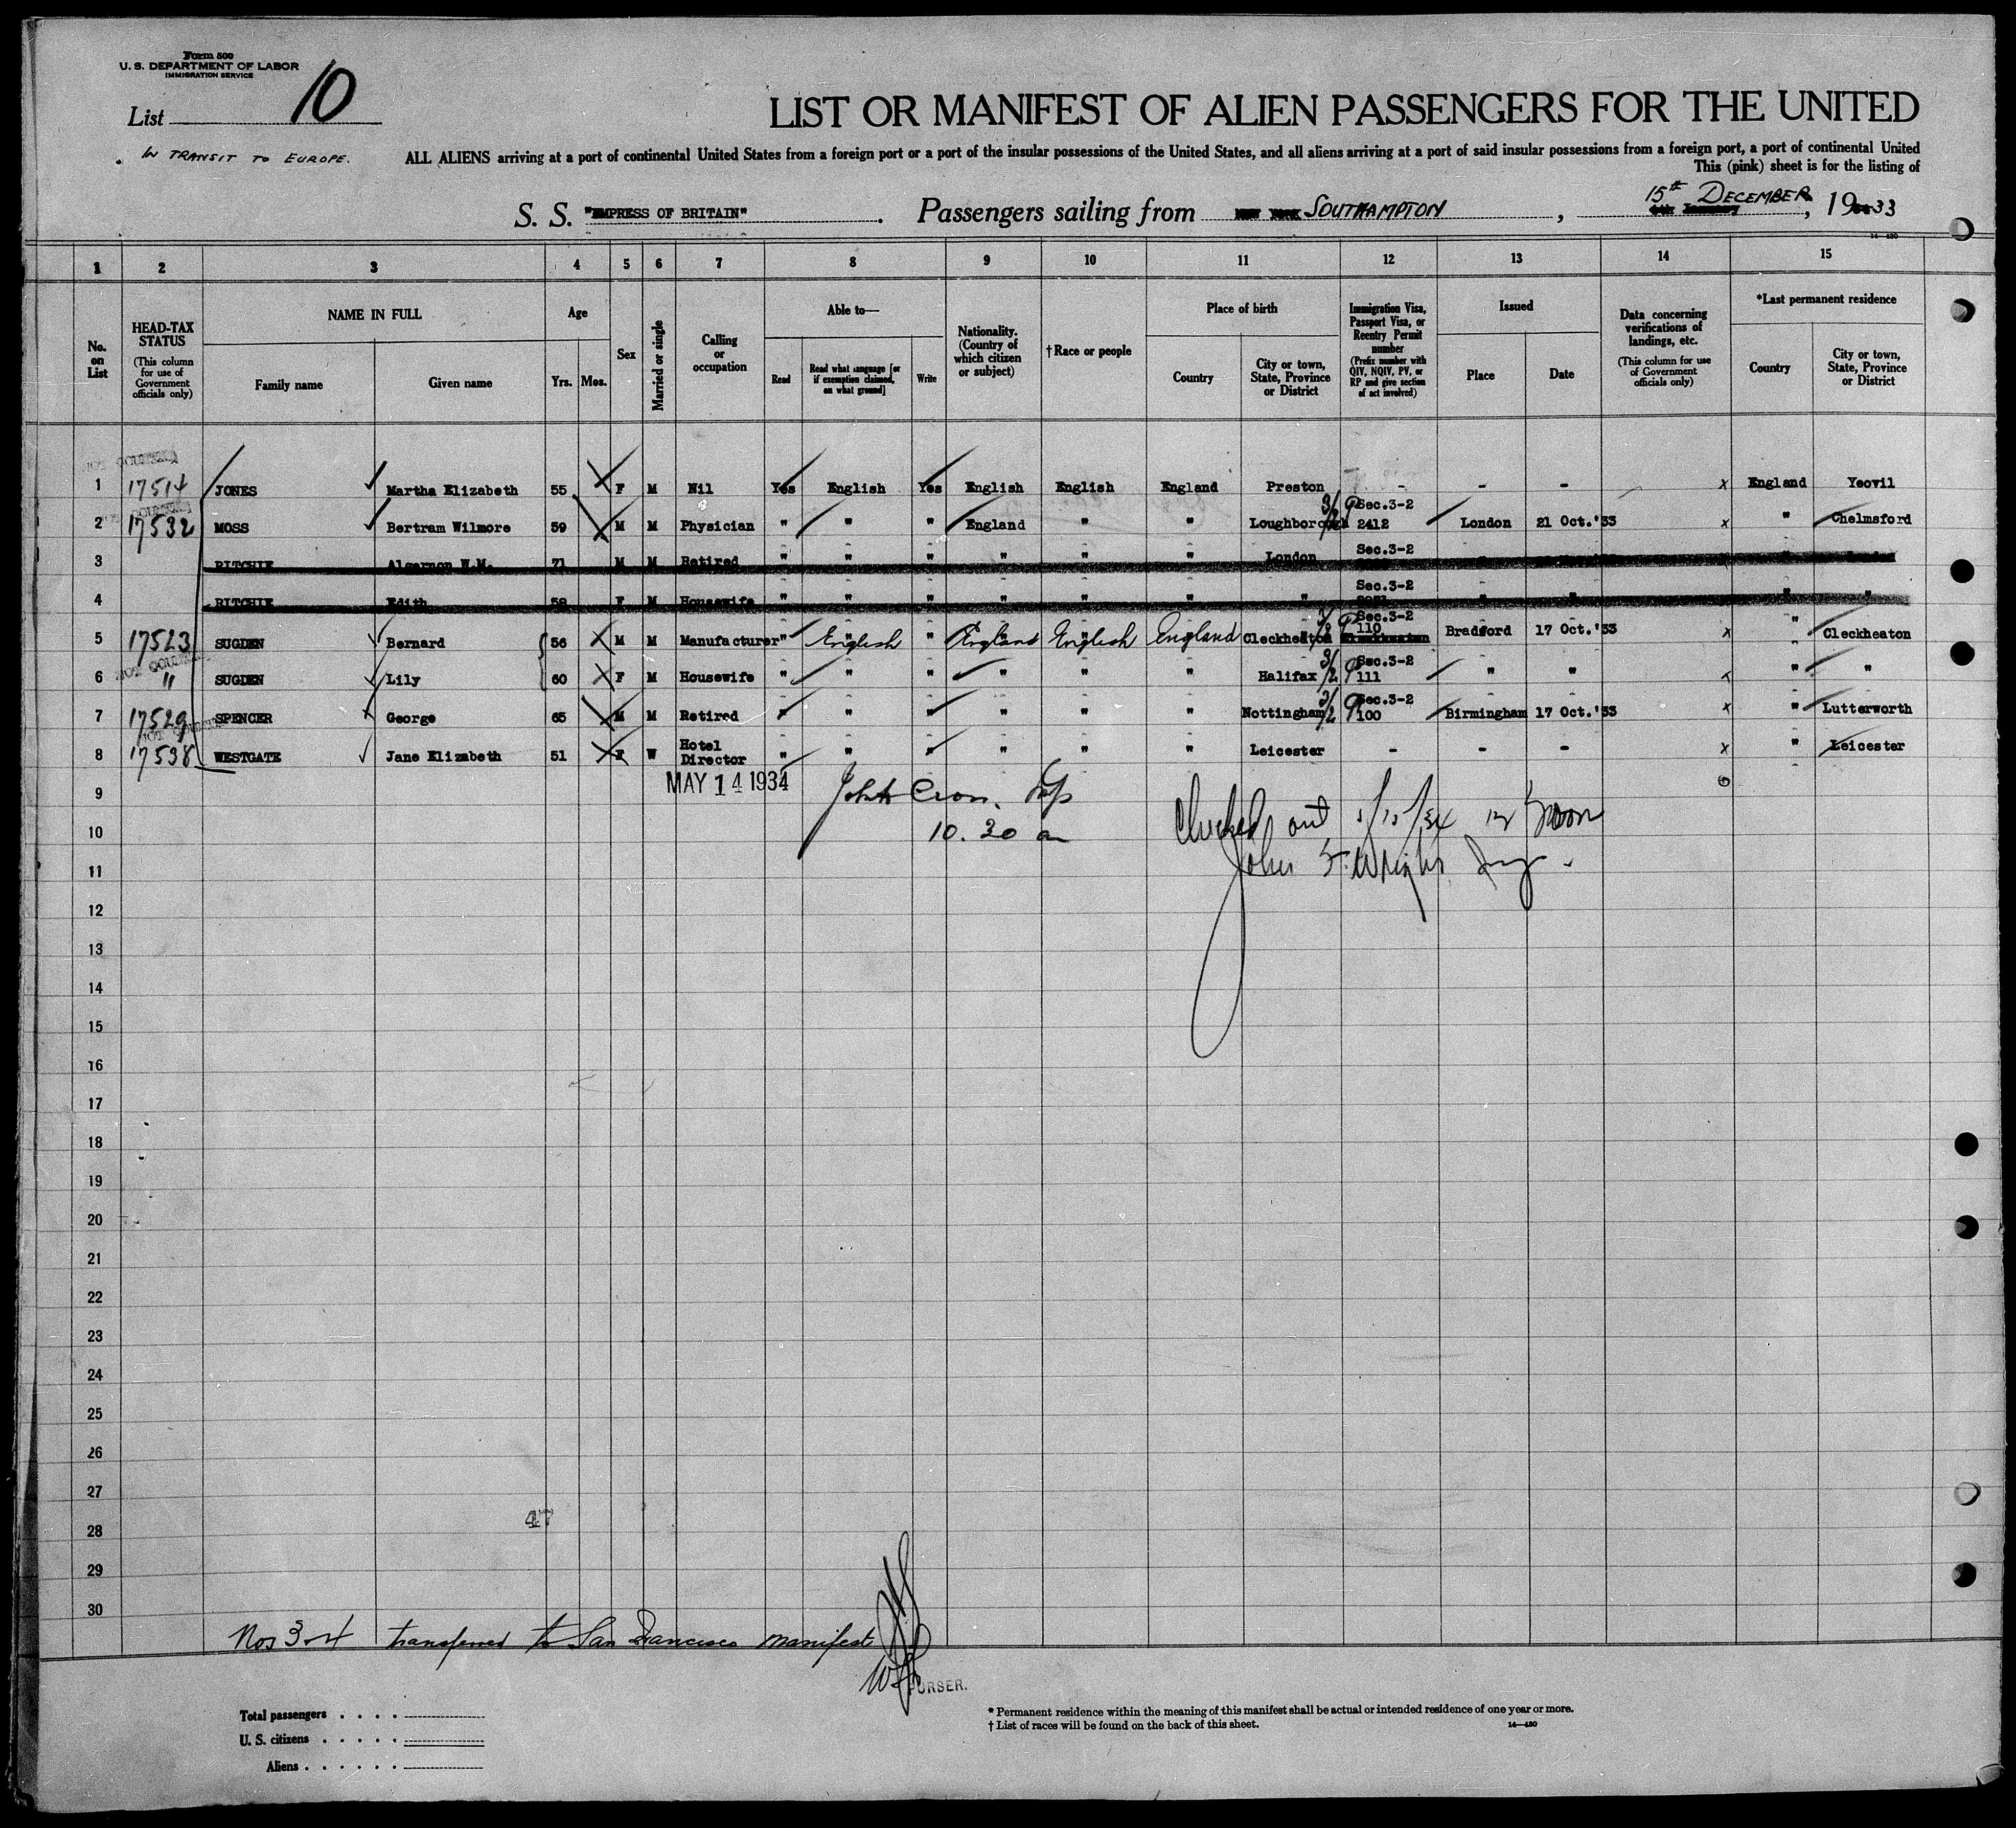 Form 500
U. S. DEPARTMENT OF LABOR
IMMIGRATION SERVICE
List 10
LIST OR MANIFEST OF ALIEN PASSENGERS FOR THE UNITED
IN TRANSIT TO EUROPE.
ALL ALIENS arriving at a port of continental United States from a foreign port or a port of the insular possessions of the United States, and all aliens arriving at a port of said insular possessions from a foreign port, a port of continental United
This (pink) sheet is for the listing of
S. S. "EMPRESS OF BRITAIN". Passengers sailing from SOUTHAMPTON, 15th DECEMBER, 1933
14-430
1 2 3 4 5 6 7 8 9 10 11 12 13 14 15
No. on List
HEAD-TAX STATUS (This column for use of Government officials only)
NAME IN FULL
Family name Given name
Age
Yrs. Mos.
Sex
Married or single
Calling or occupation
Able to—
Read
Read what language [or if exemption claimed, on what ground]
Write
Nationality. (Country of which citizen or subject)
†Race or people
Place of birth
Country
City or town, State, Province or District
Immigration Visa, Passport Visa, or Reentry Permit number (Prefix number with QIV, NQIV, PV, or RP and give section of act involved)
Issued
Place Date
Data concerning verifications of landings, etc. (This column for use of Government officials only)
*Last permanent residence
Country
City or town, State, Province or District
1 17514 JONES Martha Elizabeth 55 F M Nil Yes English Yes English English England Preston - - - x England Yeovil
2 17532 MOSS Bertram Wilmore 59 M M Physician " " " England " " Loughborough 3/2 Sec.3-2 2412 London 21 Oct.'33 x " Chelmsford
3 RITCHIE Algernon W.M. 71 M M Retired " " " " " " London Sec.3-2 "
4 RITCHIE Edith 58 F M Housewife " " " " " " " Sec.3-2 " " " "
5 17523 SUGDEN Bernard 56 M M Manufacturer " English " England English England Cleckheaton 3/2 Sec.3-2 110 Bradford 17 Oct.'33 x " Cleckheaton
6 " SUGDEN Lily 60 F M Housewife " " " " " " Halifax 3/2 Sec.3-2 111 " " x " "
7 17529 SPENCER George 65 M M Retired " " " " " " Nottingham 3/2 Sec.3-2 100 Birmingham 17 Oct.'33 x " Lutterworth
8 17538 WESTGATE Jane Elizabeth 51 F W Hotel Director " " " " " " Leicester - - - x " Leicester
MAY 14 1934
9
10 10.30 am
Checked out 12 Noon
11 John F. Wright
12
13
14
15
16
17
18
19
20
21
22
23
24
25
26
27
47
28
29
30
Nos 3-4 transferred to San Francisco manifest
PURSER.
Total passengers
U. S. citizens
Aliens
* Permanent residence within the meaning of this manifest shall be actual or intended residence of one year or more.
† List of races will be found on the back of this sheet. 14—430